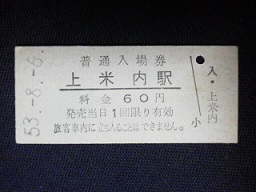 普通入場券
上米内駅
料金60円
発売当日1回限り有効
旅客車内に立ち入ることはできません。
53.-8.-6
入・上米内
小